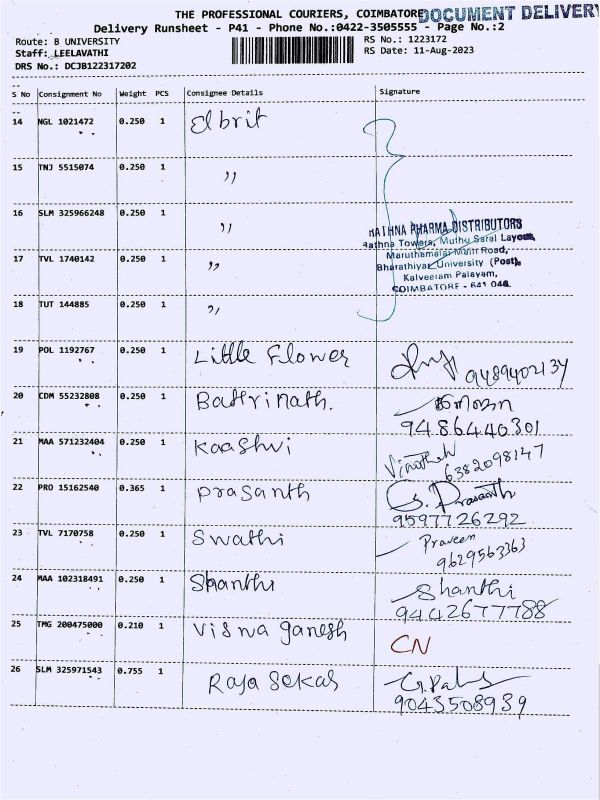 THE PROFESSIONAL COURIERS, COIMBATORE
DOCUMENT DELIVERY
Delivery Runsheet - P41 - Phone No.:0422-3505555 - Page No.:2
Route: B UNIVERSITY
RS No.: 1223172
Staff: LEELAVATHI
RS Date: 11-Aug-2023
DRS No.: DCJB122317202
S No Consignment No Weight PCS Consignee Details Signature
14 NGL 1021472 0.250 1 Elbrit
15 TNJ 5515074 0.250 1 "
16 SLM 325966248 0.250 1 "
RATHNA PHARMA DISTRIBUTORS
Rathna Towers, Muthu Saral Layout,
Maruthamalai Main Road,
17 TVL 1740142 0.250 1 "
Bharathiyar University (Post),
Kalveeram Palayam,
COIMBATORE - 641 046.
18 TUT 144885 0.250 1 "
19 POL 1192767 0.250 1 Little Flower
9489402134
20 CDM 55232808 0.250 1 Bathrinath.
9486440301
21 MAA 571232404 0.250 1 Kaashvi
Vinothah 6382098147
22 PRO 15162540 0.365 1 prasanth G. Prasanth
9597726292
23 TVL 7170758 0.250 1 Swathi Praveen
9629563363
24 MAA 102318491 0.250 1 Shanthi Shanthi
9442677788
25 TMG 200475000 0.210 1 Viswa ganesh CN
26 SLM 325971543 0.755 1 Raja Sekar
9043508939